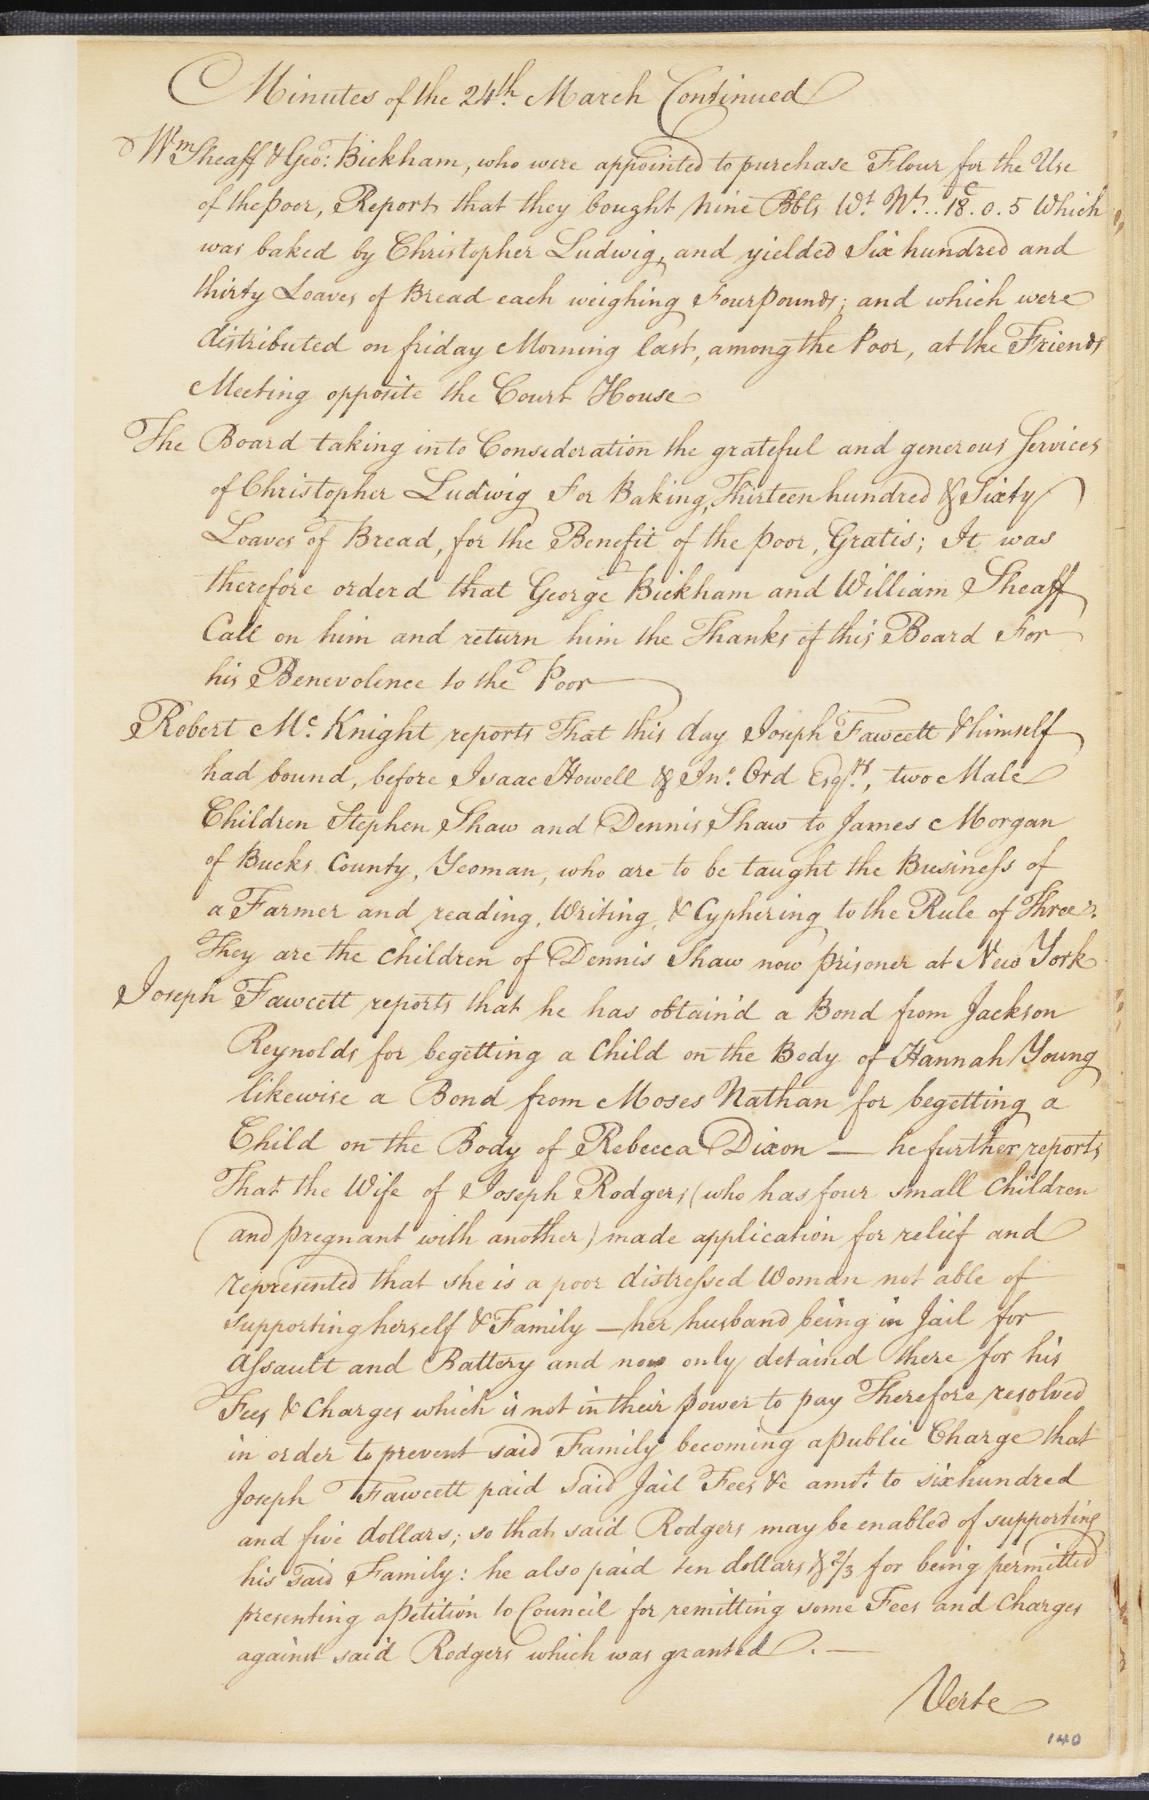 Minutes of the 24th. March Continued
Wm Sheaff & Geo: Bickham, who were appointed to purchase Flour for the Use
of the poor, Report that they bought Nine Bbls Wt. Nt... 18c. 0. 5 Which
was baked by Christopher Ludwig, and yielded Six hundred and
thirty Loaves of Bread each weighing Four pounds; and which were
distributed on friday Morning last, among the Poor, at the Friends
Meeting opposite the Court House
The Board taking into Consideration the grateful and generous Services
of Christopher Ludwig For Baking, Thirteen hundred & Sixty
Loaves of Bread, for the Benefit of the poor, Gratis; It was
therefore orderd that George Bickham and William Sheaff
Call on him and return him the Thanks of this Board For
his Benevolence to the Poor
Robert Mc. Knight reports That this day Joseph Fawcett & himself
had bound, before Isaac Howell & Jno. Ord Esqrs., two Male
Children Stephen Shaw and Dennis Shaw to James Morgan
of Bucks County, Yeoman, who are to be taught the Business of
a Farmer and reading, Writing, & Cyphering to the Rule of Three.
They are the Children of Dennis Shaw now prisoner at New York
Joseph Fawcett reports that he has obtain'd a Bond from Jackson
Reynolds for begetting a Child on the Body of Hannah Young
likewise a Bond from Moses Nathan for begetting a
Child on the Body of Rebecca Dixon — he further reports
That the Wife of Joseph Rodgers (who has four small Children
(and pregnant with another) made application for relief and
represented that she is a poor distressed Woman not able of
supporting herself & Family — her husband being in Jail for
Assault and Battery and now only detaind there for his
Fees & Charges which is not in their power to pay Therefore resolved
in order to prevent said Family becoming a public Charge that
Joseph Fawcett paid said Jail Fees &c amot. to six hundred
and five dollars; so that said Rodgers may be enabled of supporting
his said Family: he also paid ten dollars & 2/3 for being permitted
presenting a Petition to Council for remitting some Fees and Charges
against said Rodgers which was granted. —
Verte
140